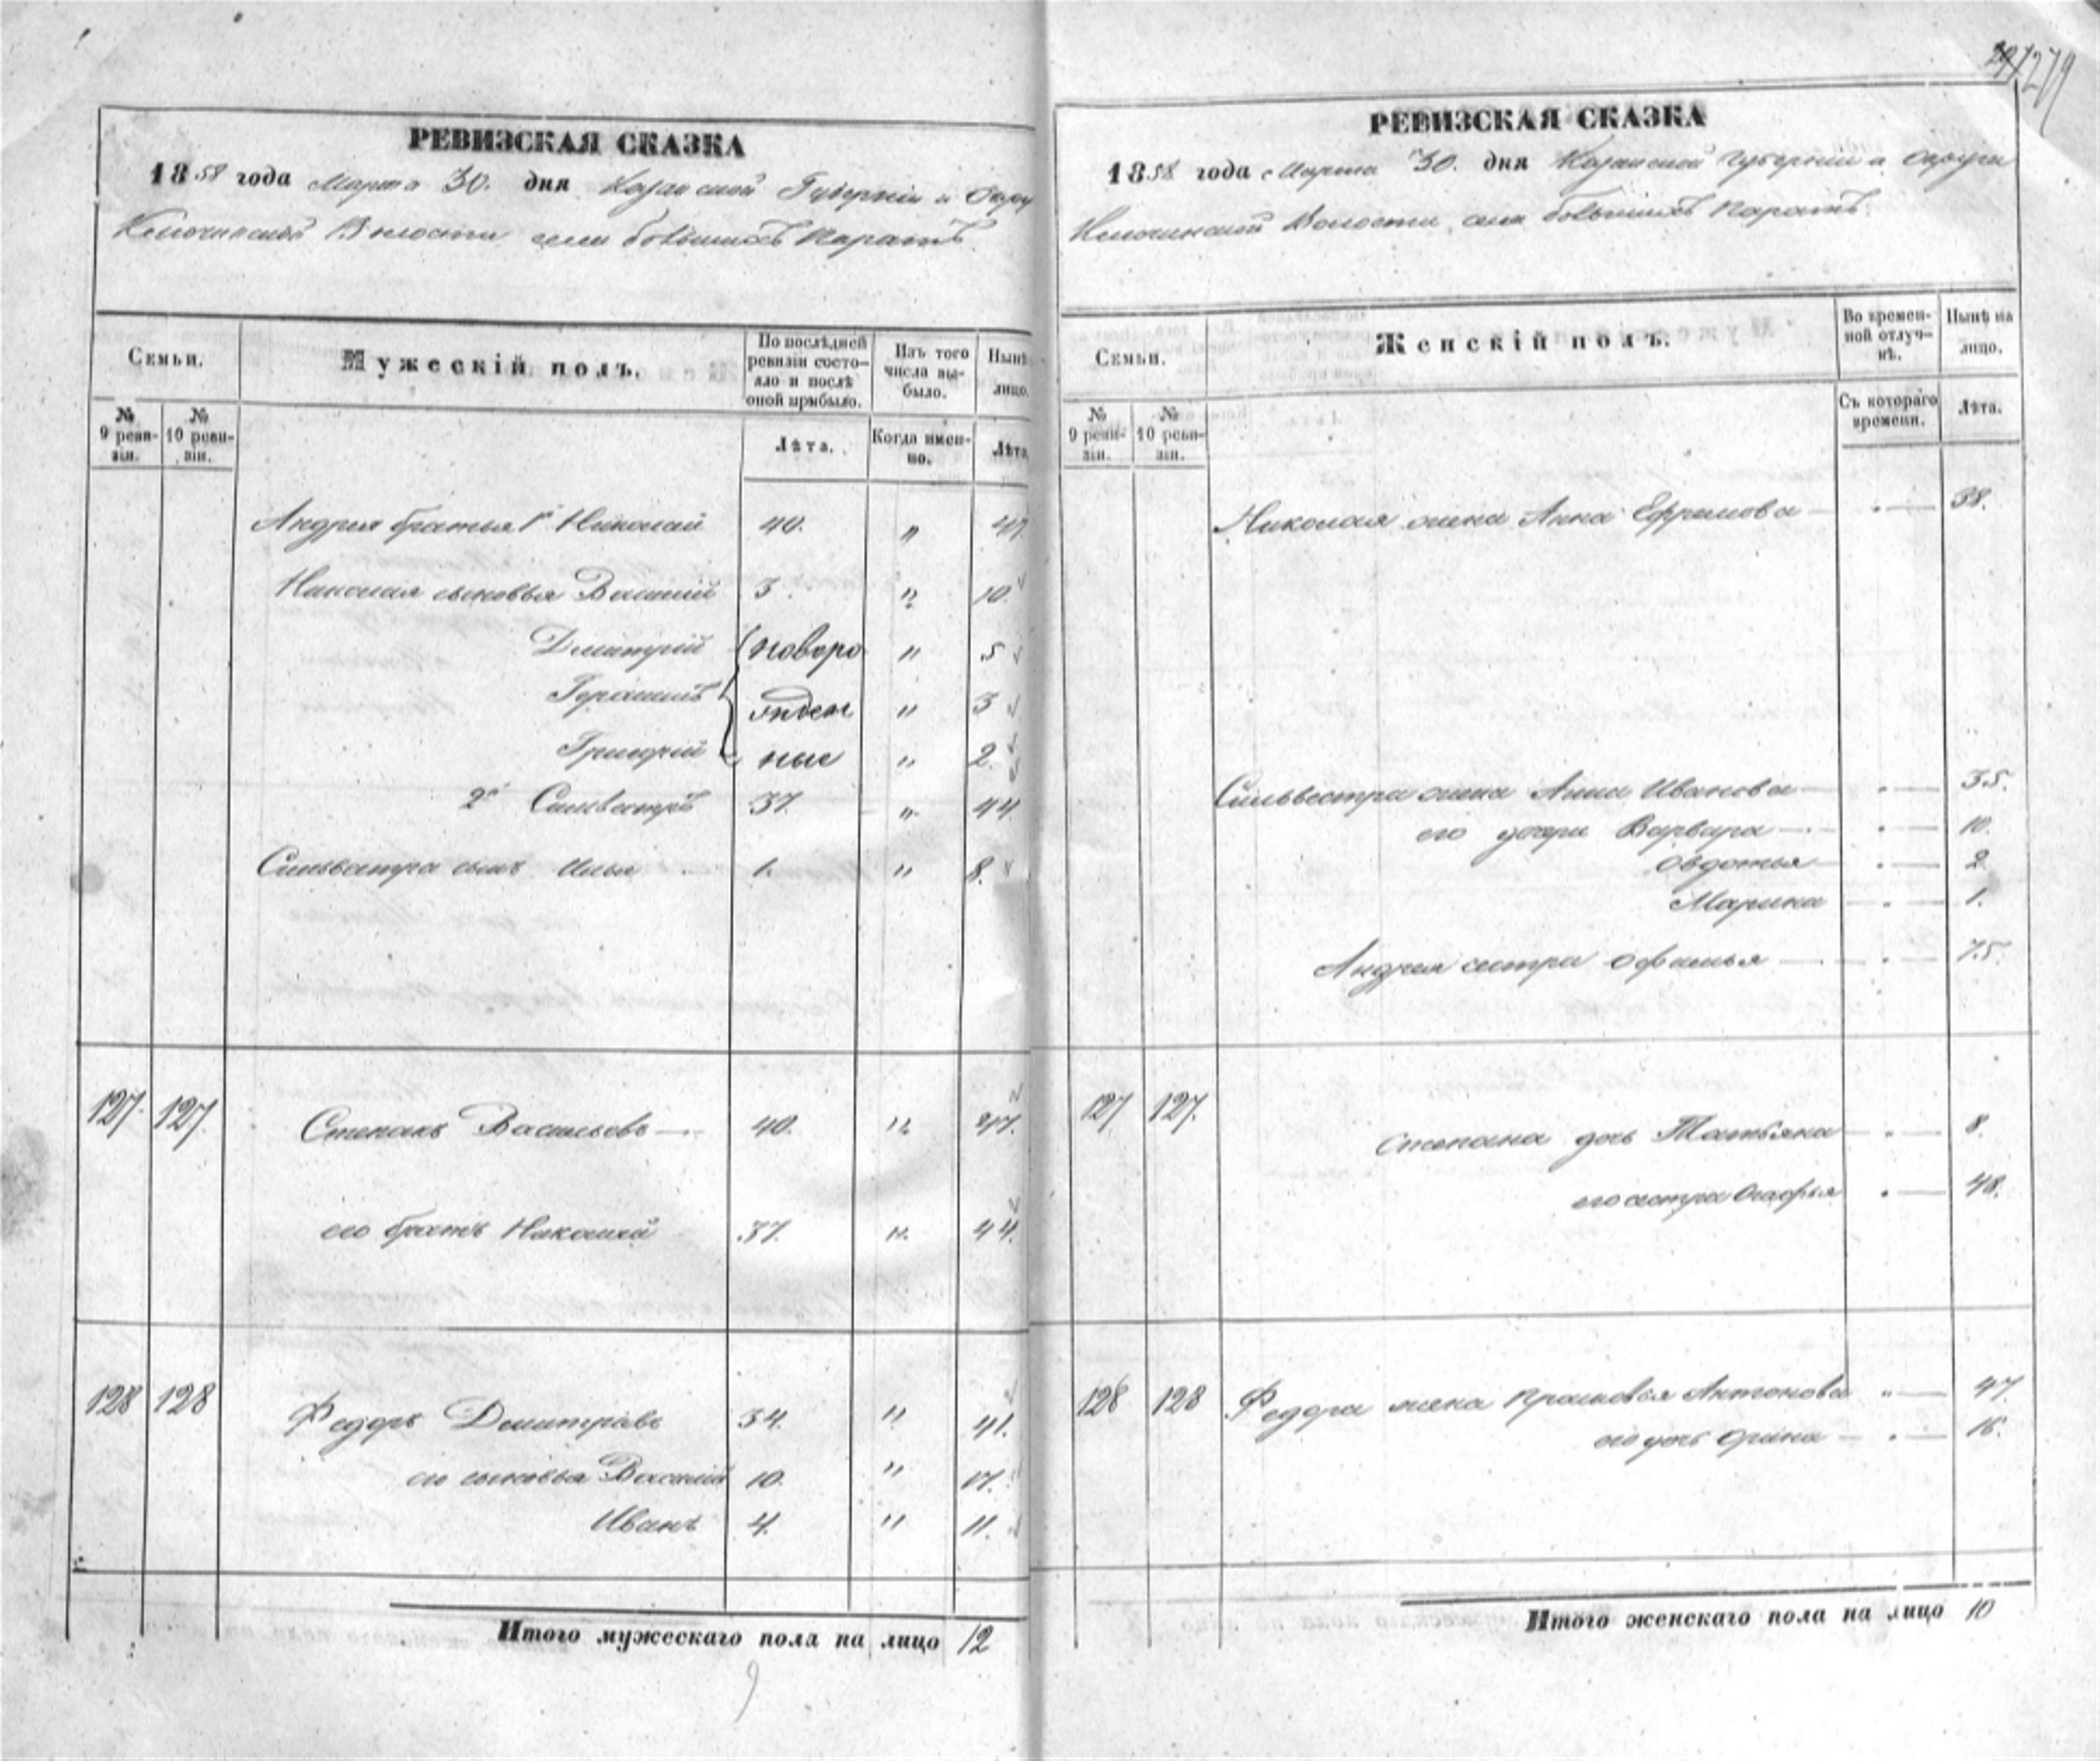 279
РЕВИЗСКАЯ СКАЗКА
1858 года Марта 30. дня Казанской Губерніи и Окру
Волости села большихъ Паратъ
Семьи.
Мужескій полъ.
По послѣдней ревизіи состояло и послѣ оной прибыло.
Изъ того числа выбыло.
Нынѣ лицо.
№ 9 ревизіи.
№ 10 ревизіи.
Лѣта.
Когда именно.
Лѣта.
Андрея братья 1й Николай 40. " 47.
Николая сыновья Василий 3. " 10.
Дмитрій новоро " 5
Герасимъ жден " 3
Григорій ные " 2.
2й Сильвестръ 37. " 44
Сильвестра сынъ Илья 1. " 8.
127. 127 Степанъ Васильевъ 40. " 47.
его братъ Николай 37. " 44.
128 128 Федоръ Дмитріевъ 34. " 41.
его сыновья Василий 10. " 17.
Иванъ 4. " 11.
Итого мужескаго пола на лицо 12
РЕВИЗСКАЯ СКАЗКА
1858 года Марта 30. дня Казанской Губерніи и Округи
Волости села большихъ Паратъ
Семьи.
Женскій полъ.
Во временной отлучкѣ.
Нынѣ на лицо.
№ 9 ревизіи.
№ 10 ревизіи.
Съ котораго времени.
Лѣта.
Николая жена Анна Ефремова 38.
Сильвестра жена Анна Иванова 35.
его дочери Варвара 10.
Овдотья 2.
Марина 1.
Андрея сестра Офимья 75.
127 127. Степана дочь Татьяна 8.
его сестра Огафья 48.
128 128 Федора жена Прасковья Антонова " 47
его дочь Орина 16.
Итого женскаго пола на лицо 10